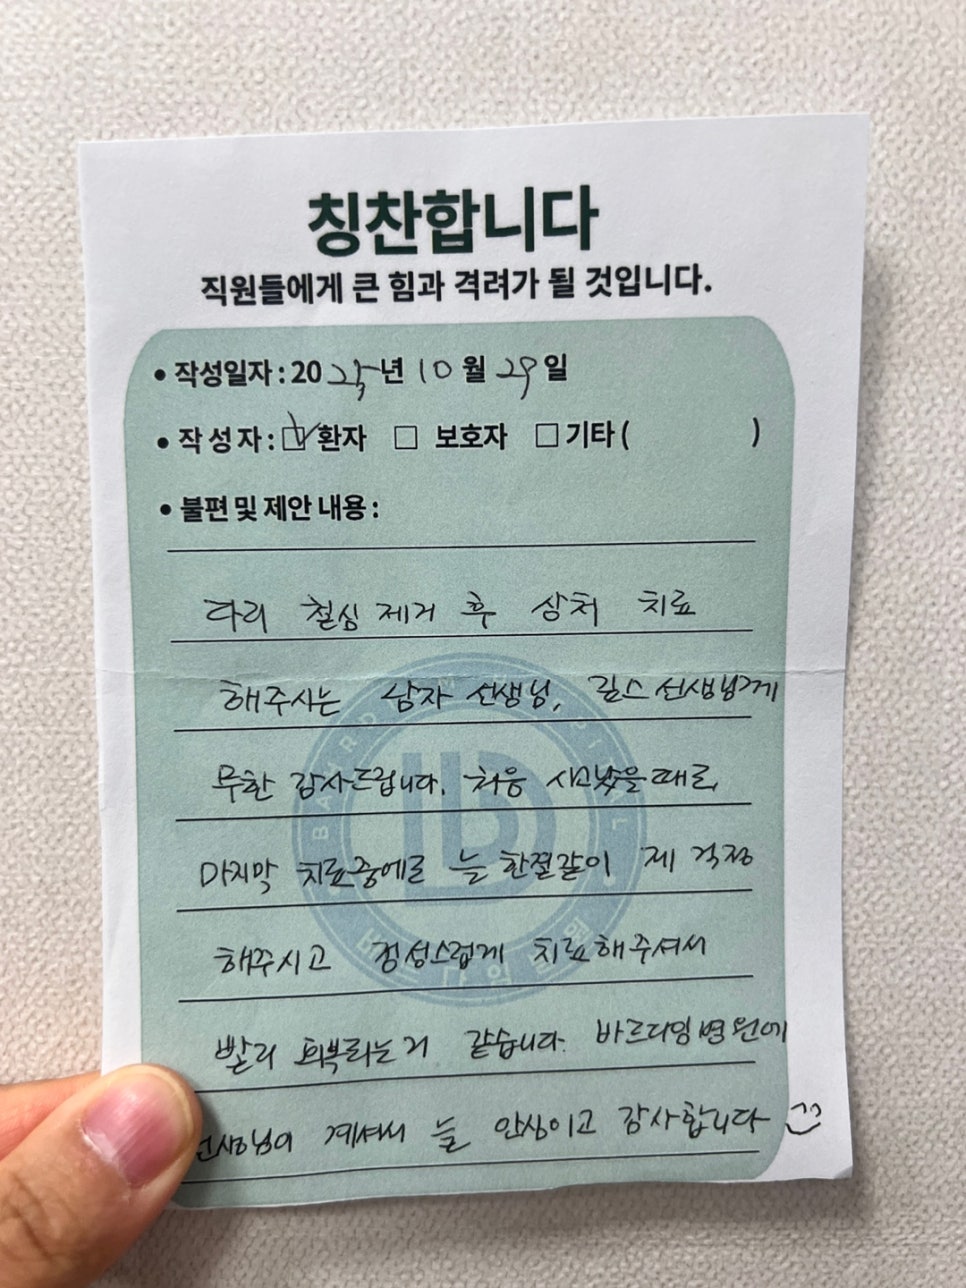 칭찬합니다
직원들에게 큰 힘과 격려가 될 것입니다.
• 작성일자 : 2025년 10월 29일
• 작 성 자 : ☑환자 □ 보호자 □기타 ( )
• 불편 및 제안 내용 :
다리 철심 제거 후 상처 치료
해주시는 남자 선생님, 선생님께
무한 감사드립니다. 처음 때로
마지막 치료중에로 늘 한결같이 제 걱정
해주시고 정성스럽게 치료해주셔서
빨리 회복되는거 같습니다. 바르다임병원에
선생님이 계셔서 늘 안심이고 감사합니다